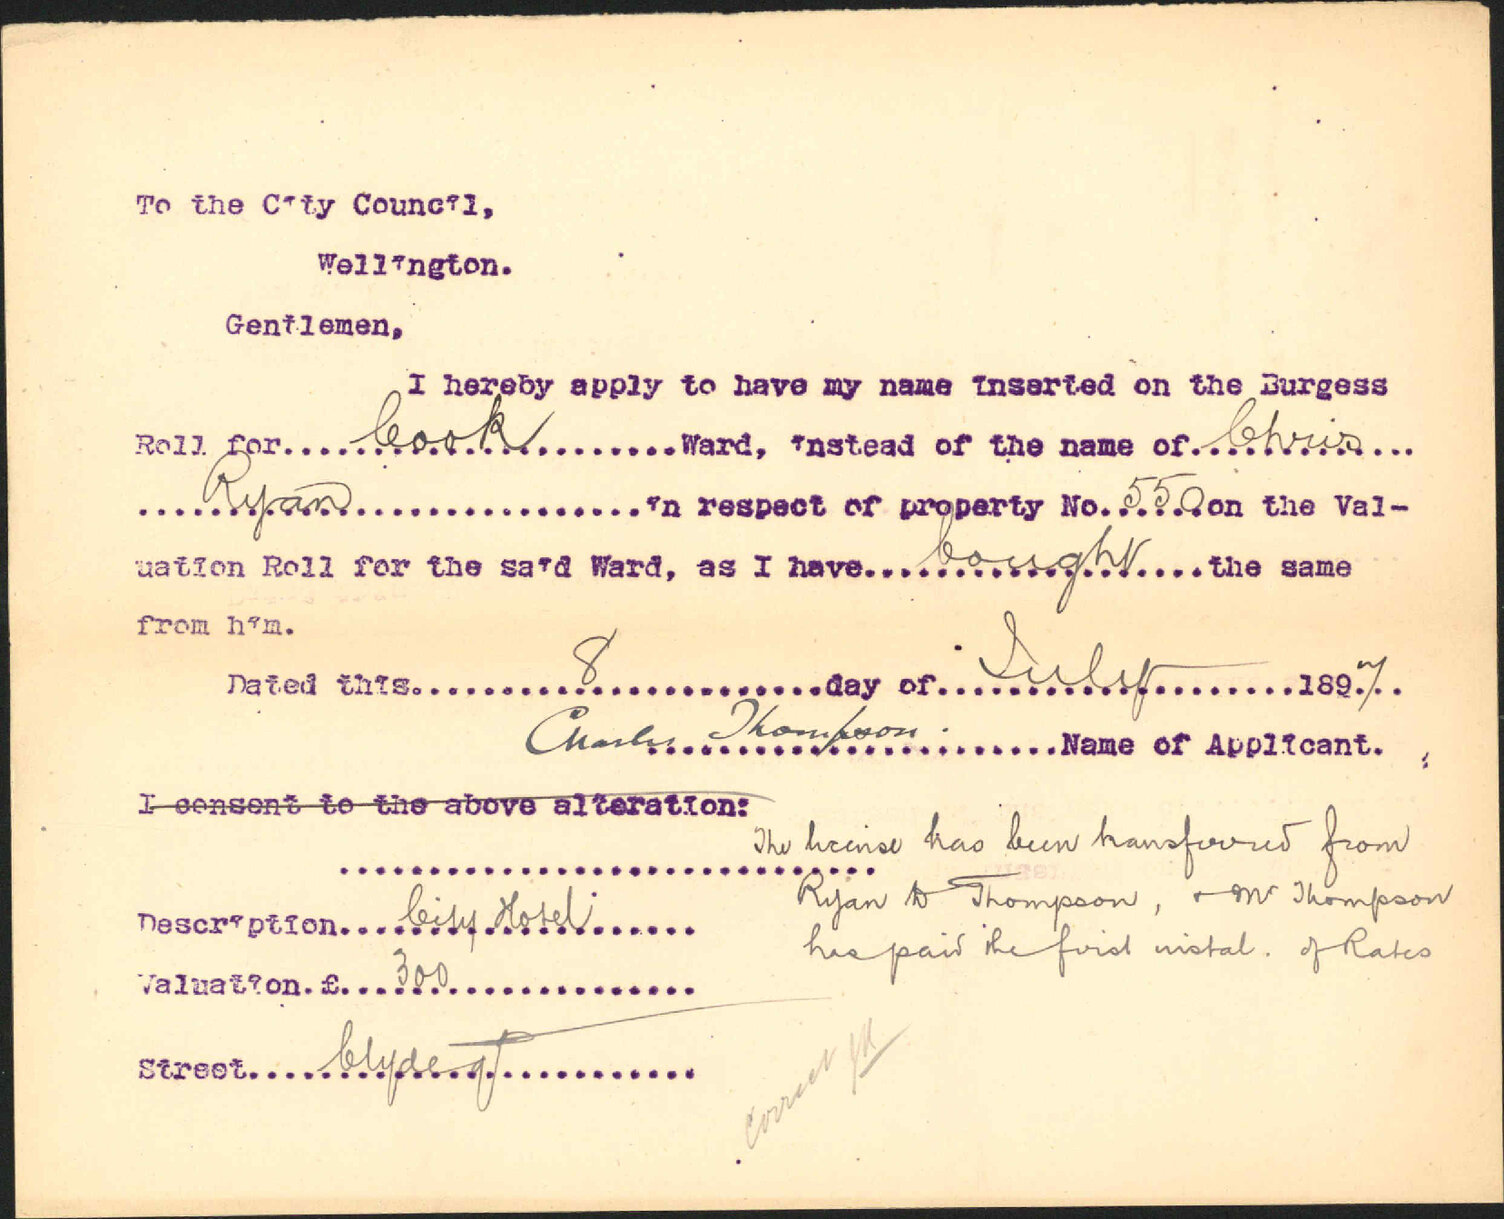 To the City Council,
Wellington.
Gentlemen,
I hereby apply to have my name inserted on the Burgess
Roll for....Cook....Ward, instead of the name of..Chris...
....Ryan....in respect of property No..550.on the Val-
uation Roll for the said Ward, as I have..bought....the same
from him.
Dated this....8....day of....July....1897..
Charles Thompson....Name of Applicant.
I consent to the above alteration:
The license has been transferred from
Ryan to Thompson, + Mr Thompson
has paid the first instal. of Rates
Description....City Hotel....
Valuation.£....300....
Street....Clyde Qy....
Correct JM